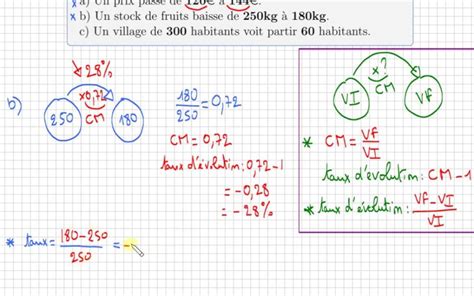 x a) Un prix passe de 120€ à 144€.
x b) Un stock de fruits baisse de 250kg à 180kg.
c) Un village de 300 habitants voit partir 60 habitants.
↓28%
x0,72
b) 250 CM 180
180/250 = 0,72
CM = 0,72
taux d'évolution: 0,72-1
= -0,28
= -28%
x?
VI CM VF
* CM = VF/VI
taux d'évolution: CM-1
* taux d'évolution: VF-VI/VI
* taux = 180-250/250 = -